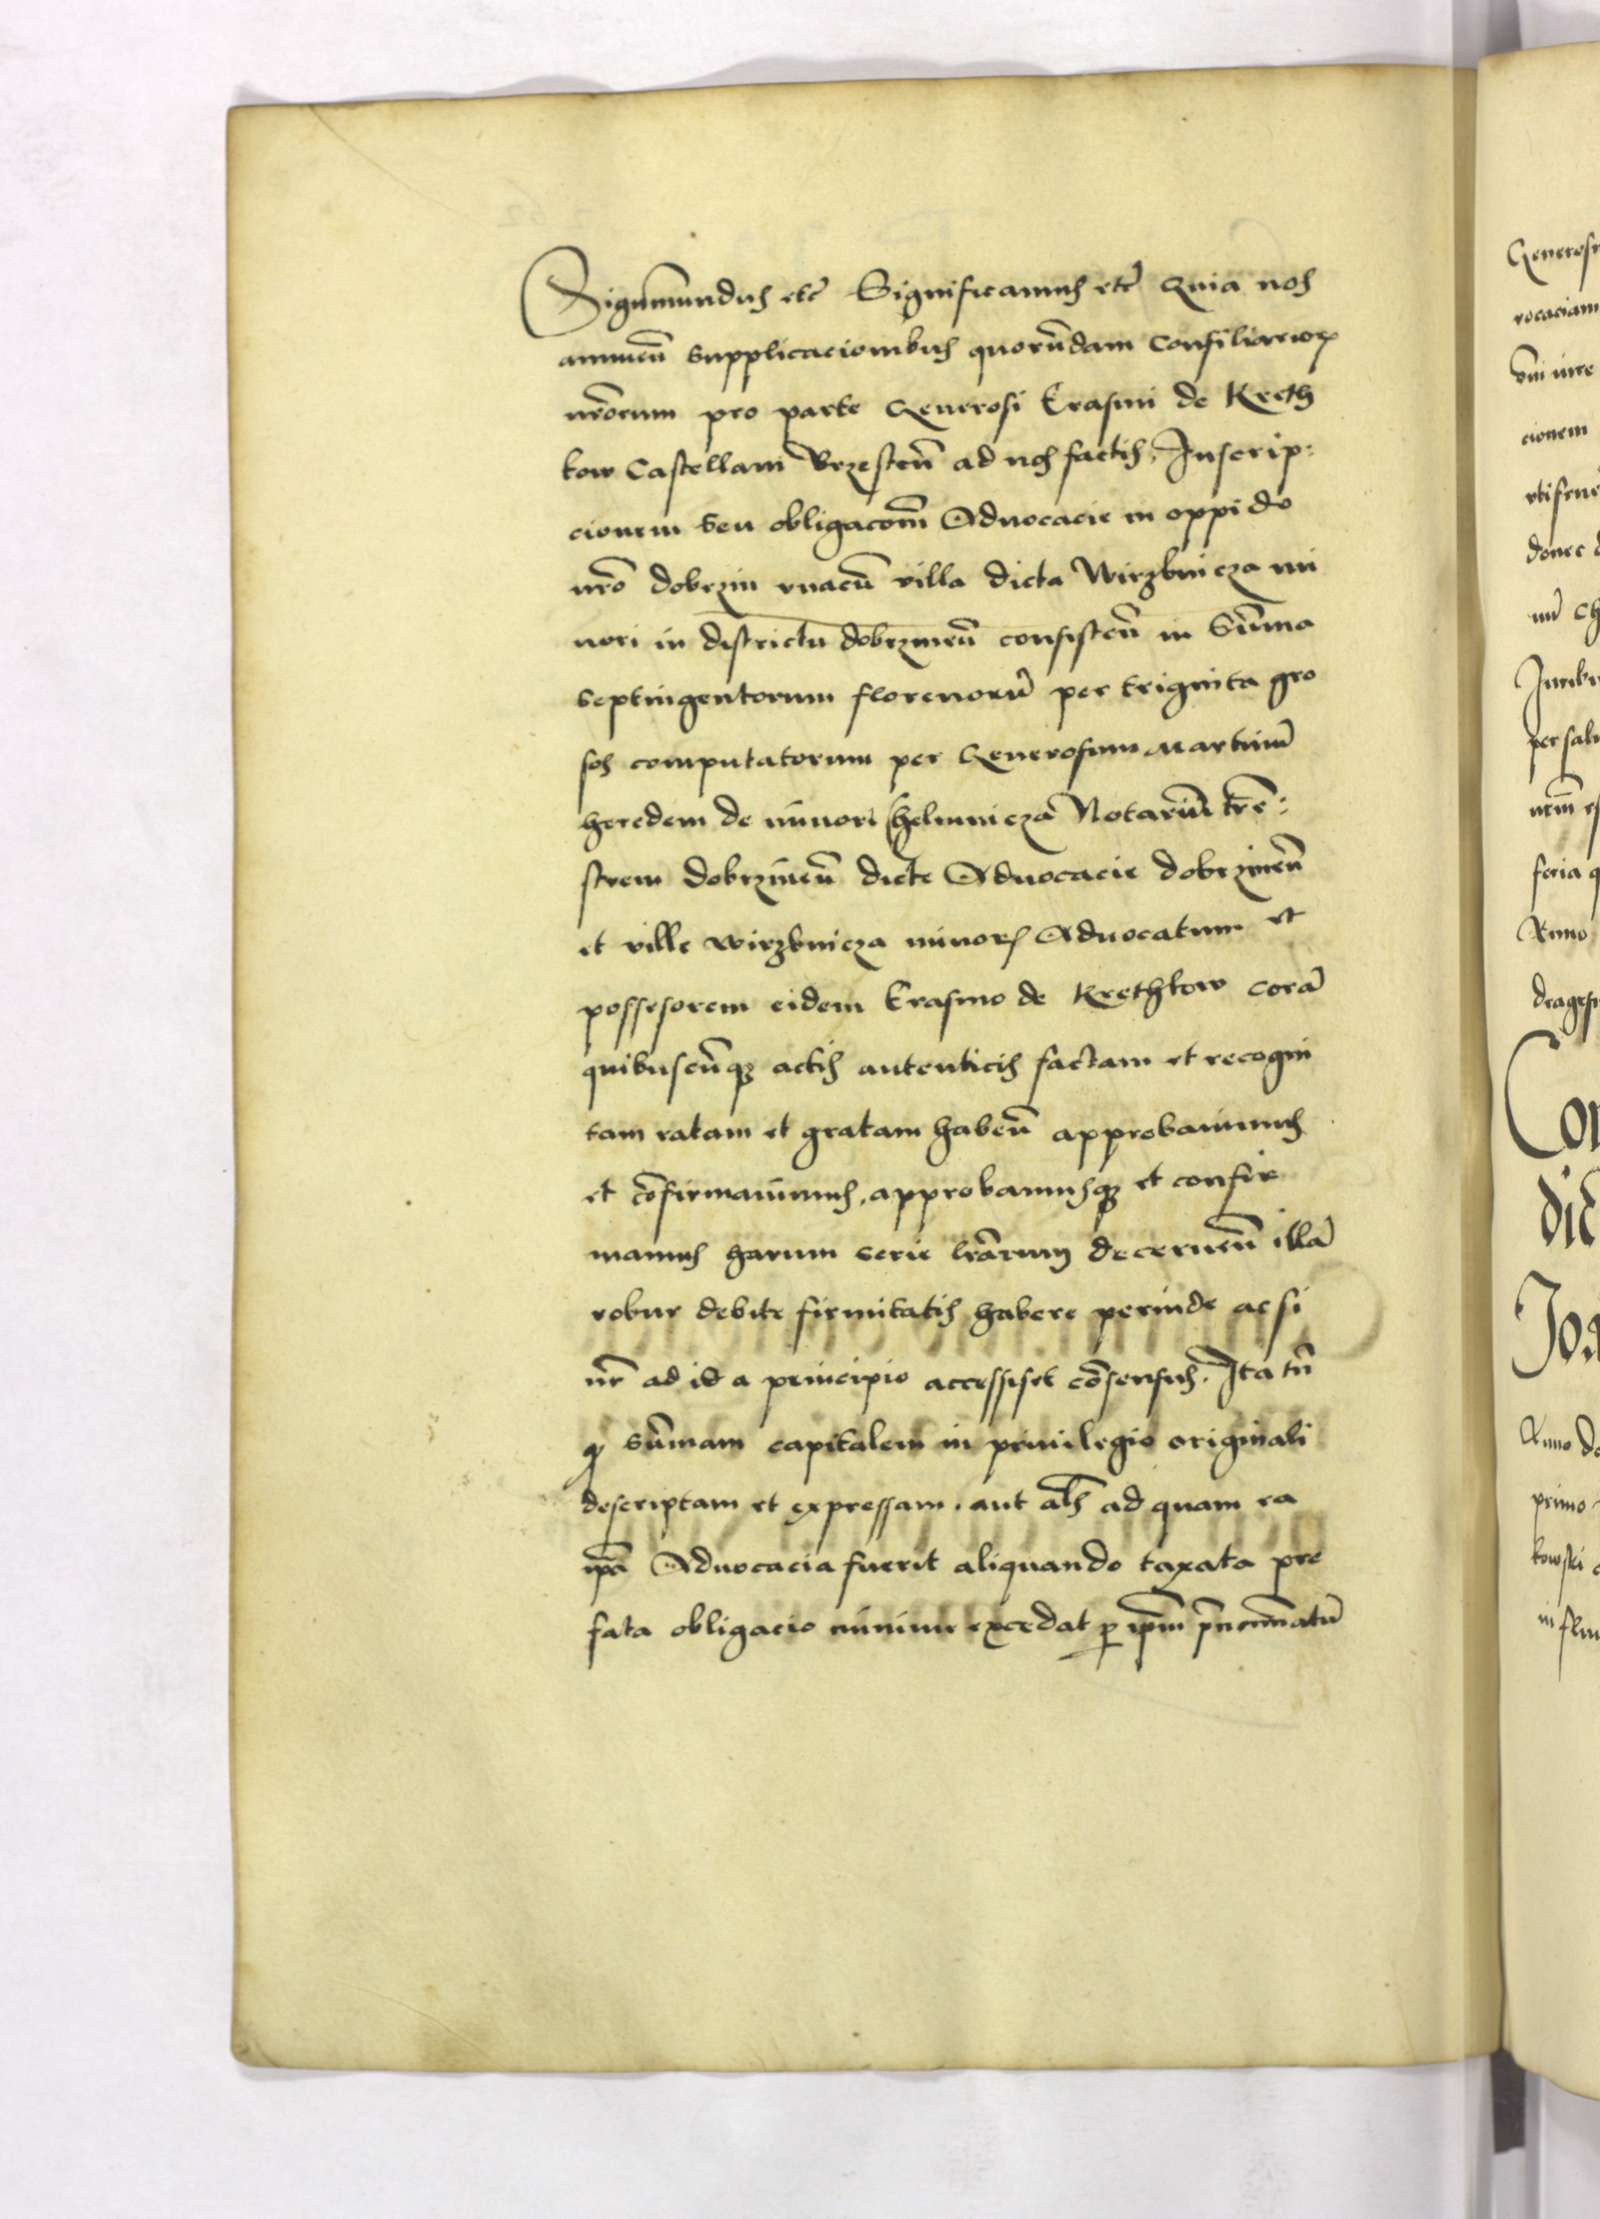 Sigismundus etc̃ Significamus etc̃ Quia nos
annueñ supplicacionibus quorũdam Consiliarioꝝ
nr̃orum pro parte Generosi Erasmi de Kreth
kow Castellani Brzesteñ ad nos factis, Inscrip:
cionem seu obligacom̃ Aduocacie in oppido
nr̃o dobrzin vnacũ villa dicta Wirzbnicza mi
nori in districtu dobrzineñ consisteñ in Sũma
septingentorum florenorũ per triginta gro
sos computatorum per Generosum Martinũ
heredem de minori Chelmnicza Notariũ tr̃e:
strem dobrzineñ dicte Aduocacie dobrzineñ
et ville wirzbnicza minorꝭ Aduocatum et
possesorem eidem Erasmo de Krethkow corã
quibuscũqꝫ actis autenticis factam et recogni
tam ratam et gratam habeñ approbauimus
et cõfirmauimus, approbamusqꝫ et confir
mamus harum serie lr̃arum decerneñ illã
robur debite firmitatis habere perinde ac si
nr̃ ad id a principio accessisset cõsensus. Ita tñ
ꝙ sũmam capitalem in priuilegio originali
descriptam et expressam. aut als̃ ad quam ea
ip̃a Aduocacia fuerit aliquando taxata pre
fata obligacio minime excedat ꝑ ip̃m
Generos
vocaciam
cionem
donec
per sal
feria
Anno
Con
dic
Anno
primo
kowski